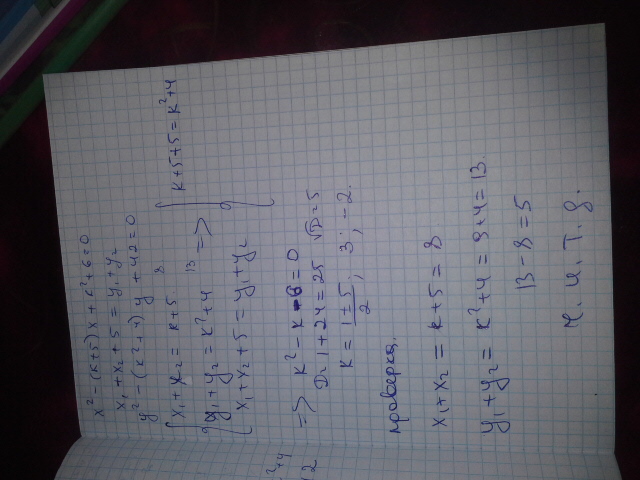 x² - (k+5)x + k² + 6 = 0
x₁ + x₂ + 5 = y₁ + y₂
y² - (k² + 4) y + 42 = 0
x₁ + x₂ = k + 5. 8
y₁ + y₂ = k² + 4 13
x₁ + x₂ + 5 = y₁ + y₂
=> { k + 5 + 5 = k² + 4
=> k² - k - 6 = 0
D = 1 + 24 = 25 √D = 5
k = (1 ± 5)/2 ; 3 ; -2.
проверка.
x₁ + x₂ = k + 5 = 8
y₁ + y₂ = k² + 4 = 9 + 4 = 13.
13 - 8 = 5
ч. и. т. д.